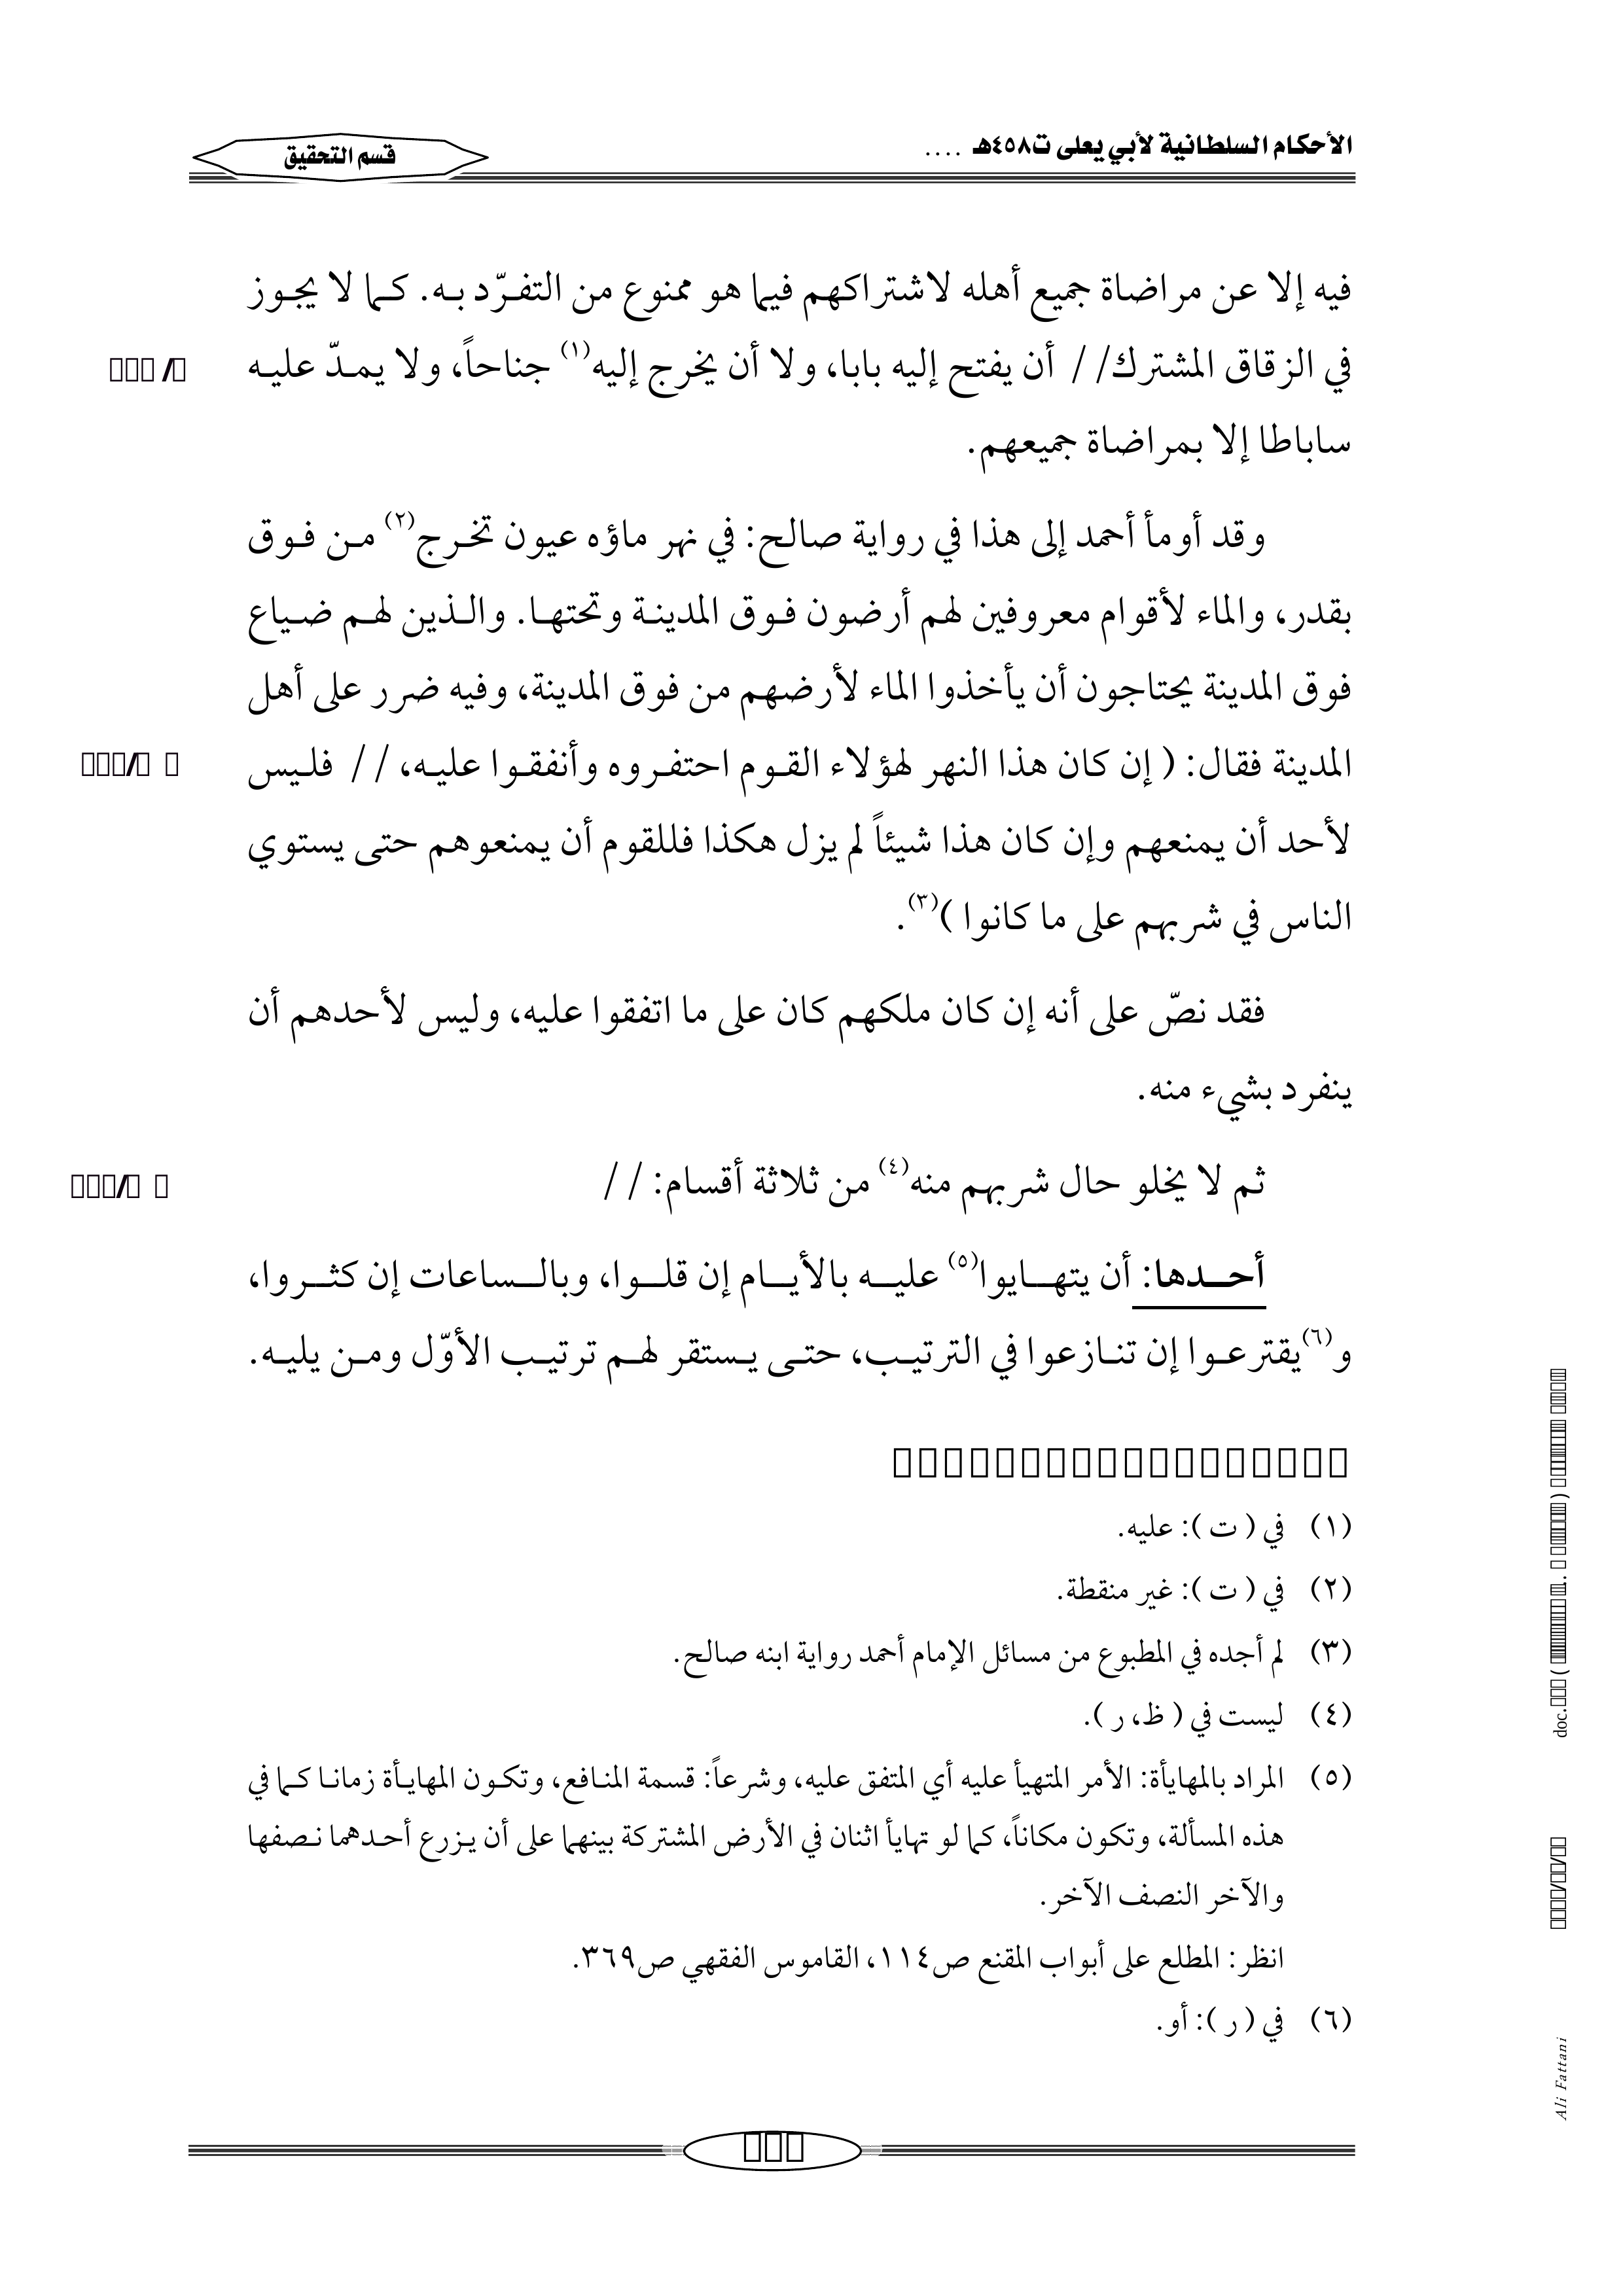 الأحكام السلطانية لأبي يعلى ت٤٥٨هـ ....
قسم التحقيق
فيه إلا عن مراضاة جميع أهله لاشتراكهم فيما هو ممنوع من التفرّد به. كما لا يجوز
في الزقاق المشترك// أن يفتح إليه بابا، ولا أن يخرج إليه(١) جناحاً، ولا يمدّ عليه
ساباطا إلا بمراضاة جميعهم.
وقد أومأ أحمد إلى هذا في رواية صالح: في نهر ماؤه عيون تخرج(٢) من فوق
بقدر، والماء لأقوام معروفين لهم أرضون فوق المدينة وتحتها. والذين لهم ضياع
فوق المدينة يحتاجون أن يأخذوا الماء لأرضهم من فوق المدينة، وفيه ضرر على أهل
المدينة فقال: ( إن كان هذا النهر لهؤلاء القوم احتفروه وأنفقوا عليه، // فليس
لأحد أن يمنعهم وإن كان هذا شيئاً لم يزل هكذا فللقوم أن يمنعوهم حتى يستوي
الناس في شربهم على ما كانوا )(٣).
فقد نصّ على أنه إن كان ملكهم كان على ما اتفقوا عليه، وليس لأحدهم أن
ينفرد بشيء منه.
ثم لا يخلو حال شربهم منه(٤) من ثلاثة أقسام: //
أحدها: أن يتهايوا(٥) عليه بالأيام إن قلوا، وبالساعات إن كثروا،
و(٦)يقترعوا إن تنازعوا في الترتيب، حتى يستقر لهم ترتيب الأوّل ومن يليه.
(١) في ( ت ): عليه.
(٢) في ( ت ): غير منقطة.
(٣) لم أجده في المطبوع من مسائل الإمام أحمد رواية ابنه صالح.
(٤) ليست في ( ظ، ر ).
(٥) المراد بالمهايأة: الأمر المتهيأ عليه أي المتفق عليه، وشرعاً: قسمة المنافع، وتكون المهايأة زمانا كما في
هذه المسألة، وتكون مكاناً، كما لو تهايأ اثنان في الأرض المشتركة بينهما على أن يزرع أحدهما نصفها
والآخر النصف الآخر.
انظر: المطلع على أبواب المقنع ص١١٤، القاموس الفقهي ص٣٦٩.
(٦) في ( ر ): أو.
doc.
Ali Fattani